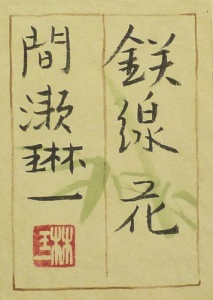 鉄線花
間瀬琳一
琳